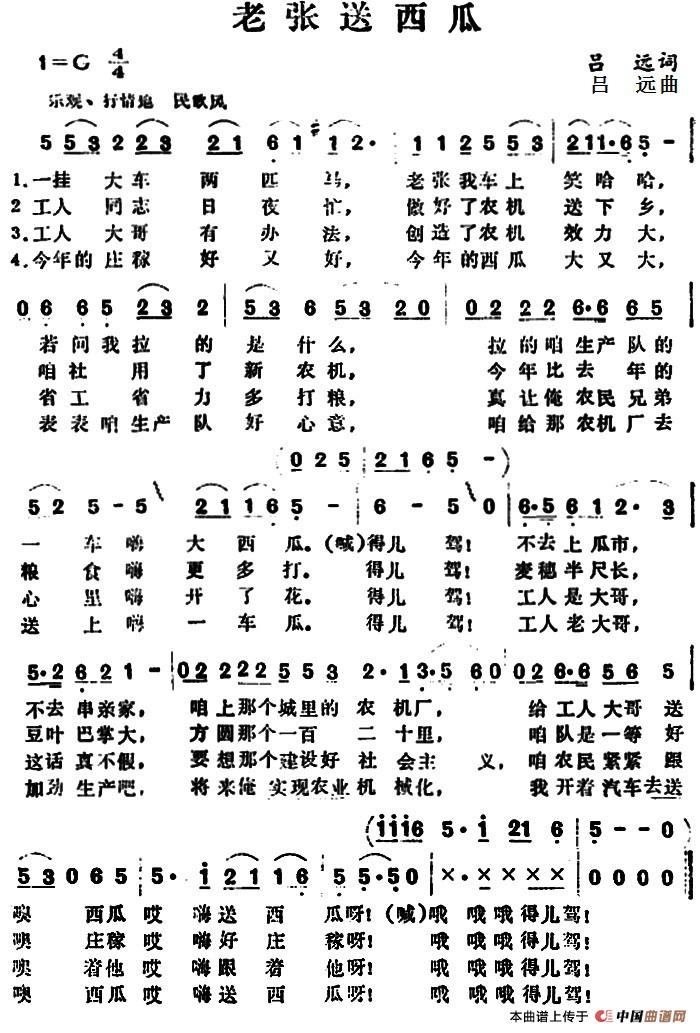 老张送西瓜
1=G 4/4
吕 远词
吕 远曲
乐观、抒情地 民歌风
5 53 2 23 21 6 1 12· 1125 53 211·6 5·-
1.一挂大车两匹马， 老张我车上笑哈哈，
2 工人同志日夜忙， 做好了农机送下乡，
3.工人大哥有办法， 创造了农机效力大，
4.今年的庄稼好又好， 今年的西瓜大又大，
0 6 6 5 23 2 53 6 53 20 02 22 6·6 65
若问我拉的是什么， 拉的咱生产队的
咱社用了新农机， 今年比去年的
省工省力多打粮， 真让俺农民兄弟
表表咱生产队好心意， 咱给那农机厂去
(0 2 5 2 1 6 5 -)
52 5 - 5 21 16 5 - 6 - 5 0 6·5 61 2·3
一车嗨大西瓜。(喊)得儿驾！不去上瓜市，
粮食嗨更多打。得儿驾！麦穗半尺长，
心里嗨开了花。得儿驾！工人是大哥，
送上嗨一车瓜。得儿驾！工人老大哥，
5·2 6 21 - 02 22 255 53 2·1 13·5 60 02 6·6 56 5
不去串亲家， 咱上那个城里的农机厂， 给工人大哥送
豆叶巴掌大， 方圆那个一百二十里， 咱队是一等好
这话真不假。 要想那个建设好社会主义，咱农民紧紧跟
加劲生产吧， 将来俺实现农业机械化， 我开着汽车去送
(iii6 5·i 21 6 5 - - 0)
53 065 5·i 2116 5 5·50 ×·×·×××× 0000
噢 西瓜哎嗨送西瓜呀！(喊)哦哦哦得儿驾！
噢 庄稼哎嗨好庄稼呀！ 哦哦哦得儿驾！
噢 着他哎嗨跟着他呀！ 哦哦哦得儿驾！
噢 西瓜哎嗨送西瓜呀！ 哦哦哦得儿驾！
本曲谱上传于 中国曲谱网